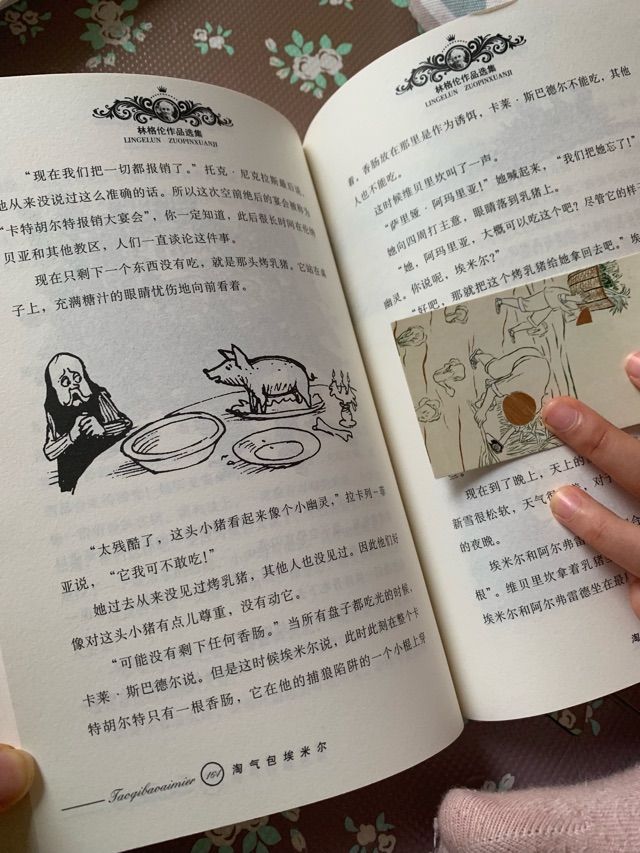 林格伦作品选集
LINGELUN ZUOPINXUANJI
“现在我们把一切都报销了。”托克·尼克拉斯最后说，
他从来没说过这么准确的话。所以这次空前绝后的宴会被称为
“卡特胡尔特报销大宴会”，你一定知道，此后很长时间在伦纳
贝亚和其他教区，人们一直谈论这件事。
现在只剩下一个东西没有吃，就是那头烤乳猪。它站在桌
子上，充满糖汁的眼睛忧伤地向前看着。
“太残酷了，这头小猪看起来像个小幽灵，”拉卡列一菲
亚说，“它我可不敢吃！”
她过去从来没见过烤乳猪，其他人也没见过。因此他们好
像对这头小猪有点儿尊重，没有动它。
“可能没有剩下任何香肠。”当所有盘子都吃光的时候，
卡莱·斯巴德尔说。但是这时候埃米尔说，此时此刻在整个卡
特胡尔特只有一根香肠，它在他的捕狼陷阱的一个小棍上穿
Taoqibaoaimier 161 淘气包埃米尔
林格伦作品选集
LINGELUN ZUOPINXUANJI
着，香肠放在那里是作为诱饵，卡莱·斯巴德尔不能吃，其他
人也不能吃。
这时候维贝里坎叫了一声。
“萨里娅·阿玛里亚！”她喊起来，“我们把她忘了！”
她向四周打主意，眼睛落到乳猪上。
“她，阿玛里亚，大概可以吃这个吧？尽管它的样子
幽灵。你说呢，埃米尔？”
“好吧，那就把这个烤乳猪给她拿回去吧。”埃
现在到了晚上，天上的
新雪很松软，天气很
的夜晚。
埃米尔和阿尔弗雷
根”。维贝里坎拿着乳猪
埃米尔和阿尔弗雷德坐在最
淘